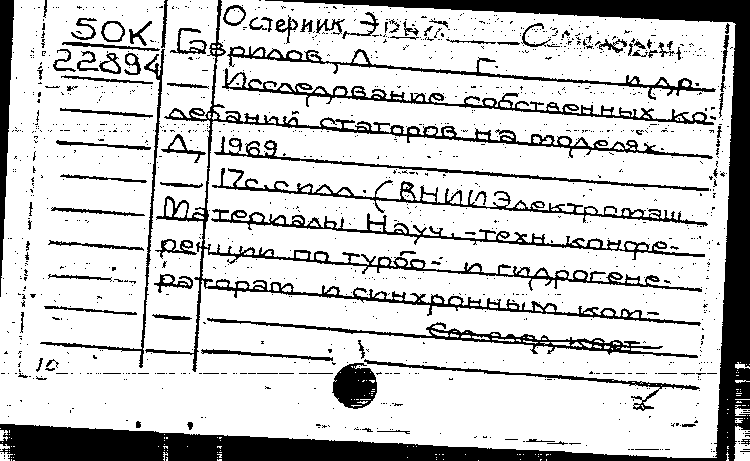 Остерник, Э
50К
22894
Гаврилов, Л Г и др.
Исследование собственных ко-
лебаний статоров на моделях.
Л, 1969.
17с. с илл. (ВНИИЭлектромаш.
Материалы Науч.-техн. конфе-
ренции по турбо- и гидрогене-
раторам и синхронным ком-
См. след. карт.
10
2